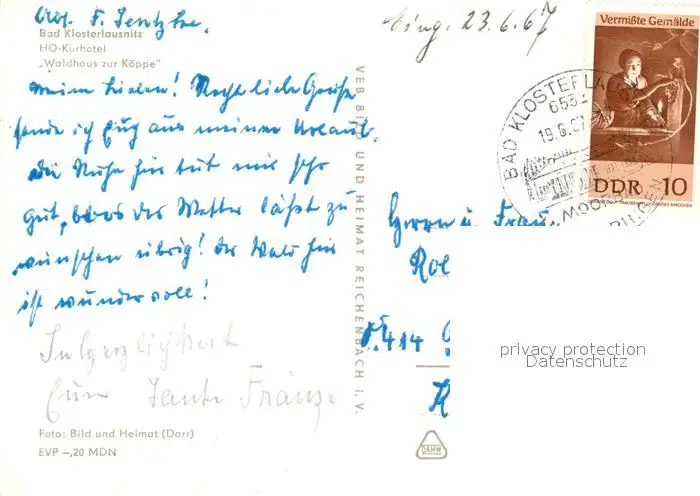 Abs. F. Jentzke.
Bad Klosterlausnitz
HO-Kurhotel
„Waldhaus zur Köppe"
Meine Lieben! Recht liebe Grüße
sende ich Euch aus meinem Urlaub.
Die Ruhe hier tut mir sehr
gut, bloß das Wetter läßt zu
wünschen übrig! Der Wald hier
ist wundervoll!
In Herzlichkeit
Eure Tante Fränze
Foto: Bild und Heimat (Darr)
EVP –,20 MDN
VEB BILD UND HEIMAT REICHENBACH I. V.
Eing. 23.6.67
Vermißte Gemälde
DDR 10
BAD KLOSTERLAUS
653
19.6.67
MOOR
Herrn u. Frau
Rol
414
K
DAMW
privacy protection
Datenschutz